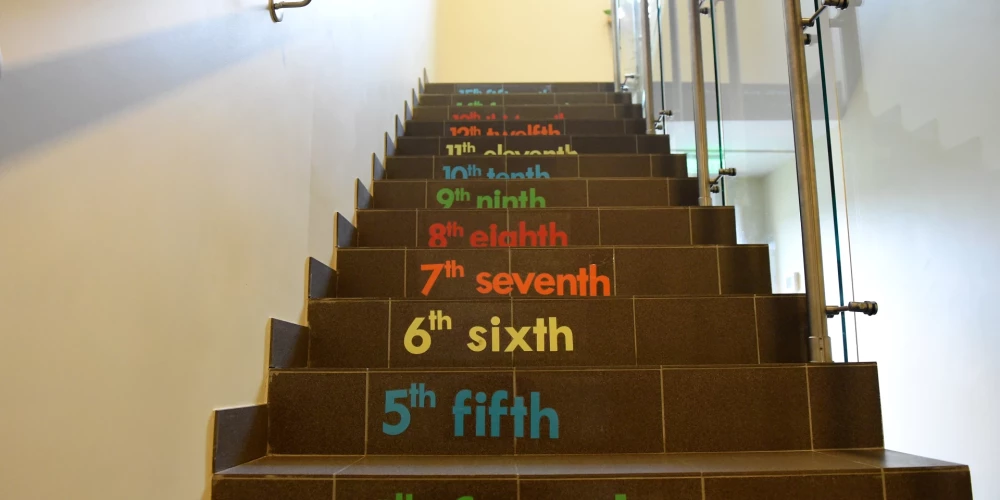 15th fifteenth
13th thirteenth
12th twelfth
11th eleventh
10th tenth
9th ninth
8th eighth
7th seventh
6th sixth
5th fifth